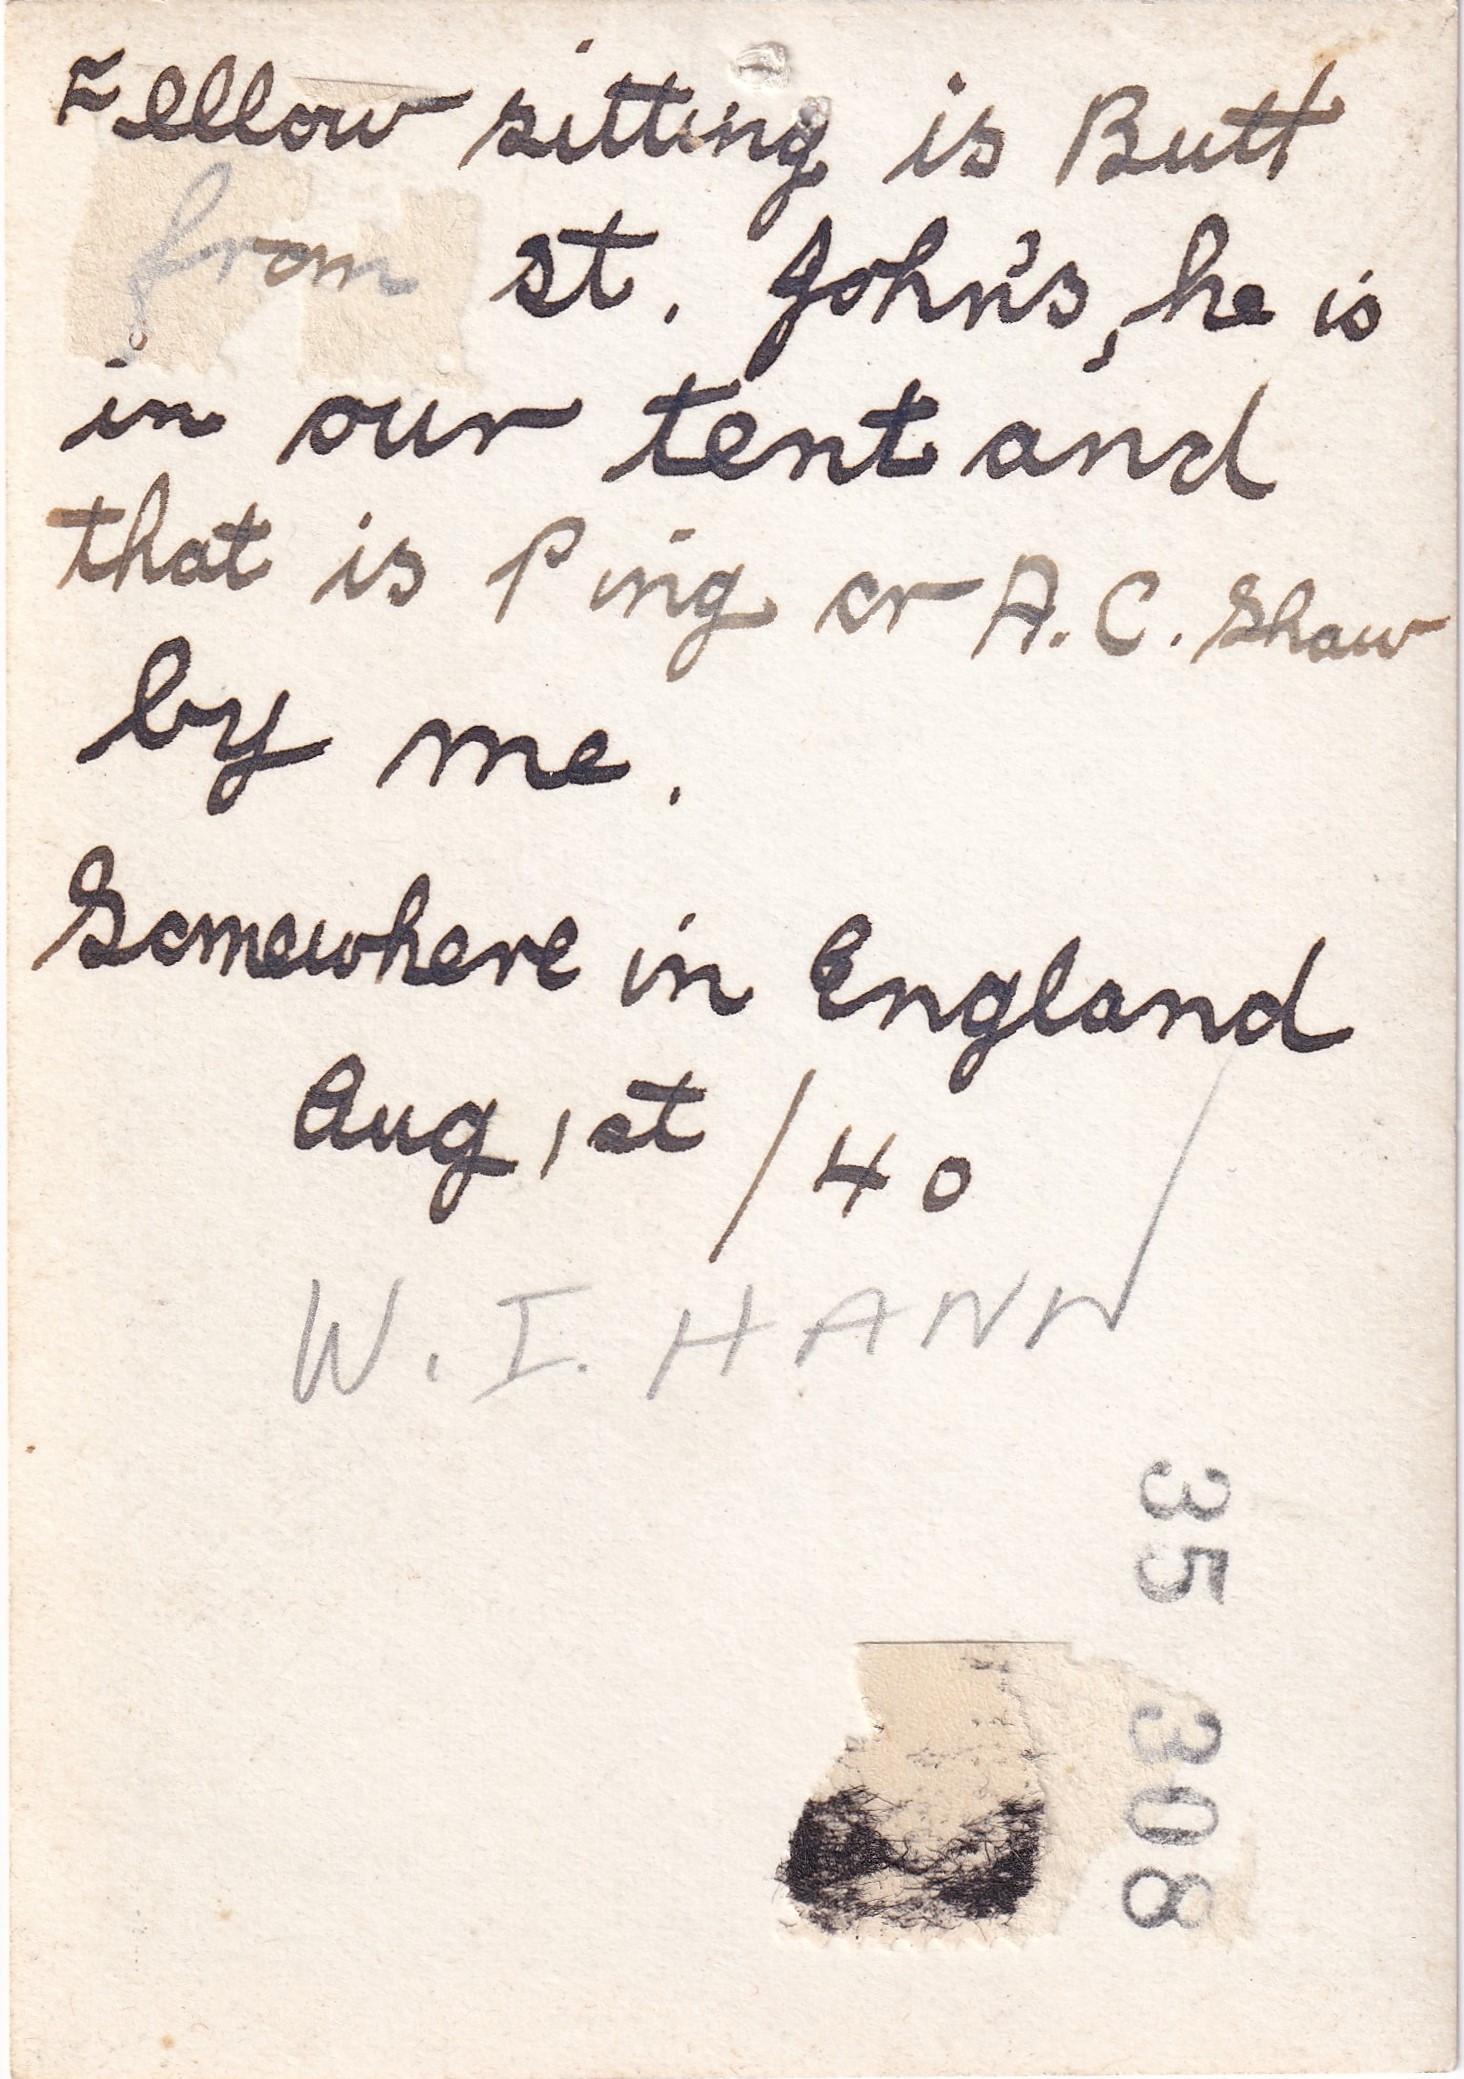 Fellow sitting is Butt
from st. John's, he is
in our tent and
that is Ping or A.C. Shaw
by me.
Somewhere in England
Aug, 1st/40
W. I. HANN
35 308